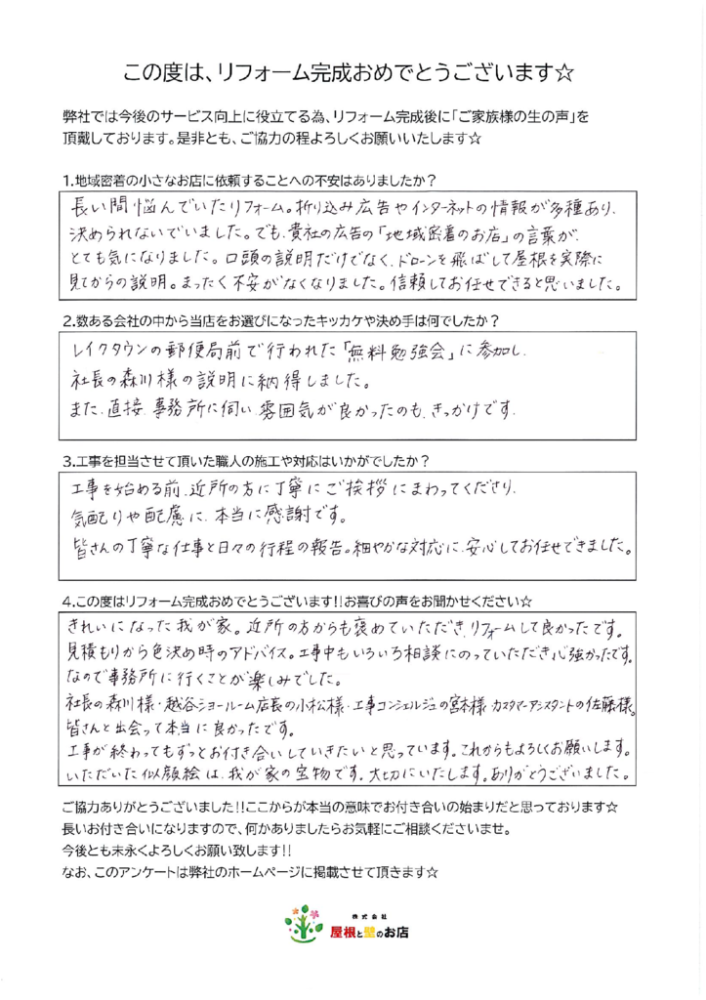 この度は、リフォーム完成おめでとうございます☆
弊社では今後のサービス向上に役立てる為、リフォーム完成後に「ご家族様の生の声」を
頂戴しております。是非とも、ご協力の程よろしくお願いいたします☆
1.地域密着の小さなお店に依頼することへの不安はありましたか？
長い間悩んでいたリフォーム。折り込み広告やインターネットの情報が多種あり、
決められないでいました。でも、貴社の広告の「地域密着のお店」の言葉が、
とても気になりました。口頭の説明だけでなく、ドローンを飛ばして屋根を実際に
見てからの説明。まったく不安がなくなりました。信頼してお任せできると思いました。
2.数ある会社の中から当店をお選びになったキッカケや決め手は何でしたか？
レイクタウンの郵便局前で行われた「無料勉強会」に参加し、
社長の森川様の説明に納得しました。
また、直接、事務所に伺い、雰囲気が良かったのも、きっかけです。
3.工事を担当させて頂いた職人の施工や対応はいかがでしたか？
工事を始める前、近所の方に丁寧にご挨拶にまわってくださり、
気配りや配慮に、本当に感謝です。
皆さんの丁寧な仕事と日々の行程の報告。細やかな対応に、安心してお任せできました。
4.この度はリフォーム完成おめでとうございます!!お喜びの声をお聞かせください☆
きれいになった我が家。近所の方からも褒めていただき、リフォームして良かったです。
見積もりから色決め時のアドバイス。工事中もいろいろ相談にのっていただき心強かったです。
なので事務所に行くことが楽しみでした。
社長の森川様・越谷ショールーム店長の小松様・工事コンシェルジュの宮本様・カスタマーアシスタントの佐藤様。
皆さんと出会って本当に良かったです。
工事が終わってもずっとお付き合いしていきたいと思っています。これからもよろしくお願いします。
いただいた似顔絵は、我が家の宝物です。大切にいたします。ありがとうございました。
ご協力ありがとうございました!!ここからが本当の意味でお付き合いの始まりだと思っております☆
長いお付き合いになりますので、何かありましたらお気軽にご相談くださいませ。
今後とも末永くよろしくお願い致します!!
なお、このアンケートは弊社のホームページに掲載させて頂きます☆
株式会社
屋根と壁のお店